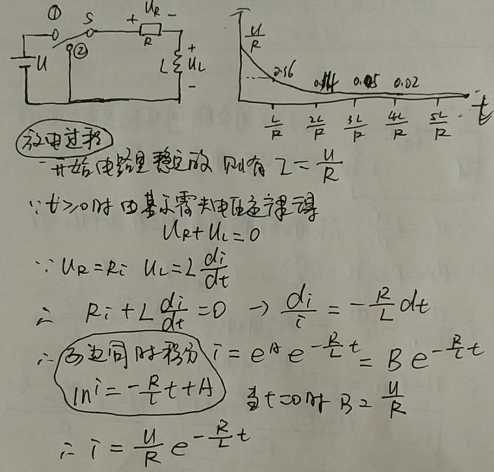 ① S + UR −
② R
U L + UL −
U/R
0.36 0.14 0.05 0.02
L/R 2L/R 3L/R 4L/R 5L/R t
放电过程
开始电路是稳定的 则有 I = U/R
∵ t≥0时 由基尔霍夫电压定律得
UR+UL=0
∵ UR=Ri UL=L di/dt
∴ Ri+L di/dt=0 → di/i = −R/L dt
∴ 两边同时积分 i = e^A e^(−R/L t) = B e^(−R/L t)
ln i = −R/L t+A 当t=0时 B = U/R
∴ i = U/R e^(−R/L t)